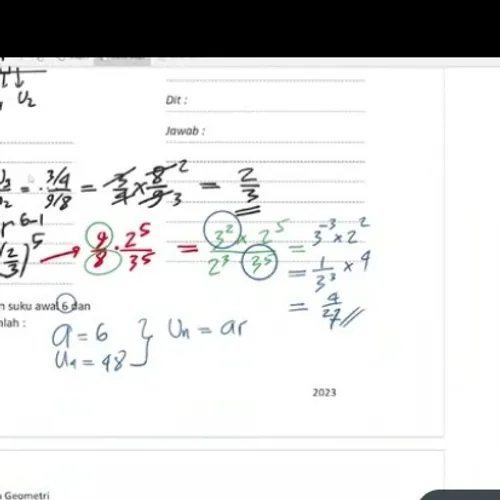 U2
Dit :
Jawab :
= 3/4 / 9/8 = 3/4 × 8/9 2 3 = 2/3
r 6-1
(2/3)^5 → 9/8 · 2^5/3^5 = 3^2 × 2^5 / 2^3 · 3^5 = 3^-3 × 2^2
= 1/3^3 × 4
= 4/27 //
n suku awal 6 dan
nlah :
a = 6 } Un = ar
U4 = 48
2023
Geometri